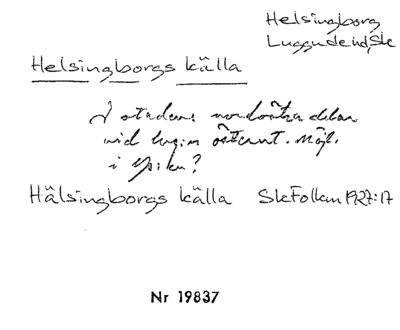 Helsingborg
Luggude hd, Sk
Helsingborgs källa
I stadens nordöstra delen
vid lungin östernt. Möjl.
i
Hälsingborgs källa SkFolkm 1927:17
Nr 19837